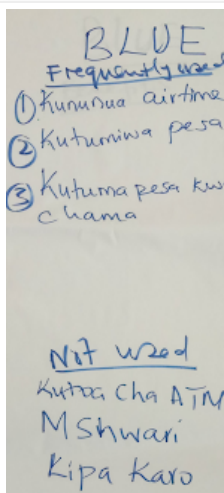 BLUE
Frequently used
① Kununua airtime
② Kutumiwa pesa
③ Kutuma pesa kw
chama
Not used
Kutoa Cha ATM
M Shwari
Kipa Karo